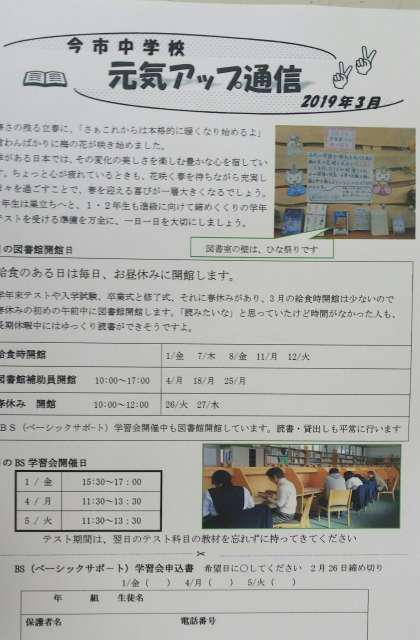 今市中学校
元気アップ通信
2019年3月
寒さの残る立春に、「さぁこれからは本格的に暖くなり始めるよ」
言わんばかりに梅の花が咲き始めました。
季がある日本では、その変化の美しさを楽しむ豊かな心を宿してい
す。ちょっと心が疲れているときも、花咲く春を待ちながら充実し
日々を過ごすことで、春を迎える喜びが一層大きくなるでしょう。
年生は巣立ちへと、1・2年生も進級に向けて締めくくりの学年
テストを受ける準備を万全に、一日一日を大切にしましょう。
図書室の壁は、ひな祭りです
月の図書館開館日
給食のある日は毎日、お昼休みに開館します。
学年末テストや入学試験、卒業式と修了式、それに春休みがあり、3月の給食時開館は少ないので
春休みの初めの午前中に図書館開館します。「読みたいな」と思っていたけど時間がなかった人も、
長期休暇中にはゆっくり読書ができそうですよ。
給食時開館 1/金 7/木 8/金 11/月 12/火
図書館補助員開館 10:00～17:00 4/月 18/月 25/月
春休み 開館 10:00～12:00 26/火 27/木
BS（ベーシックサポート）学習会開催中も図書館開館しています。読書・貸出しも平常に行います
月のBS学習会開催日
1 / 金 15:30～17:00
4 / 月 11:30～13:30
5 / 火 11:30～13:30
テスト期間は、翌日のテスト科目の教材を忘れずに持ってきてください
BS（ベーシックサポート）学習会申込書 希望日に○してください 2月26日締め切り
1/金（ ） 4/月（ ） 5/火（ ）
年 組 生徒名
保護者名 電話番号